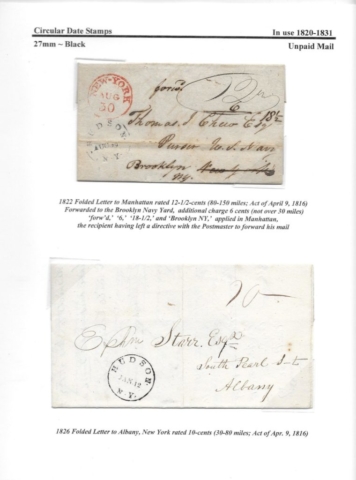 Circular Date Stamps
In use 1820-1831
27mm ~ Black
Unpaid Mail
NEW-YORK
AUG
30
forw'd
6
18½
Thomas J. Chew Esq
Purser U.S. Navy
Brooklyn
NY.
1822 Folded Letter to Manhattan rated 12-1/2-cents (80-150 miles; Act of April 9, 1816)
Forwarded to the Brooklyn Navy Yard, additional charge 6 cents (not over 30 miles)
'forw'd,' '6,' '18-1/2,' and 'Brooklyn NY,' applied in Manhattan,
the recipient having left a directive with the Postmaster to forward his mail
10
Starr, Esqr.
South Pearl
Albany
HUDSON
JAN 12
N.Y.
1826 Folded Letter to Albany, New York rated 10-cents (30-80 miles; Act of Apr. 9, 1816)